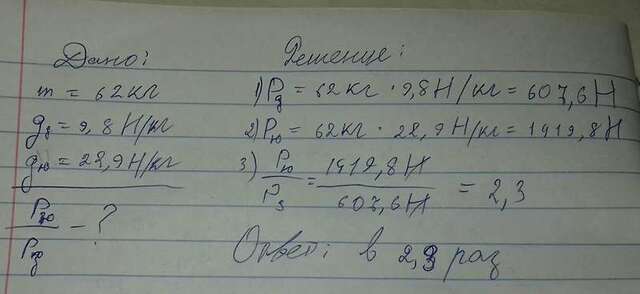 Дано:
m = 62кг
gз = 9,8 Н/кг
gю = 22,9Н/кг
Pю/Pз - ?
Решение:
1) Pз = 62кг · 9,8 Н/кг = 607,6 Н
2) Pю = 62кг · 22,9 Н/кг = 1419,8 Н
3) Pю/Pз = 1419,8 Н/607,6 Н = 2,3
Ответ: в 2,3 раз